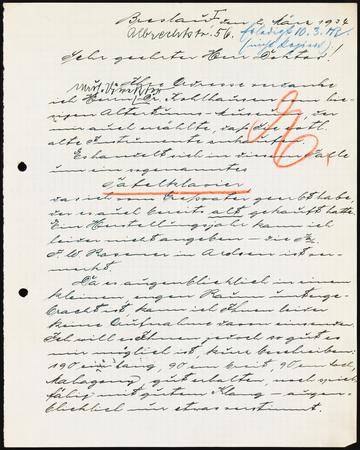 Breslau I, den 2. März 1934
Albrechtstr. 56.
erledigt 10.3.
Sehr geehrter Herr Doktor!
Ihre Adresse verdanke
ich Herrn Dr. Kohlhaussen vom hie-
sigen
mir auch erzählte, daß Sie evtl.
alte Instrumente
Es handelt sich in diesem Falle
um ein sogenanntes
Tafelklavier,
das ich vom geerbt habe,
der es auch bereits alt gekauft hatte.
Ein Herstellungsjahr kann ich
leider nicht angeben – die Fa.
F. W. in ist ver-
merkt.
Da es augenblicklich in einem
kleinen engen Raum unterge-
bracht ist, kann ich Ihnen leider
keine Aufnahme davon einsenden.
Ich will es Ihnen jedoch so gut es
mir möglich ist, kurz beschreiben:
190 cm lang, 90 cm breit, 90 cm hoch,
Mahagoni, gut erhalten, noch spiel-
fähig mit gutem Klang – augen-
blicklich nur etwas verstimmt.